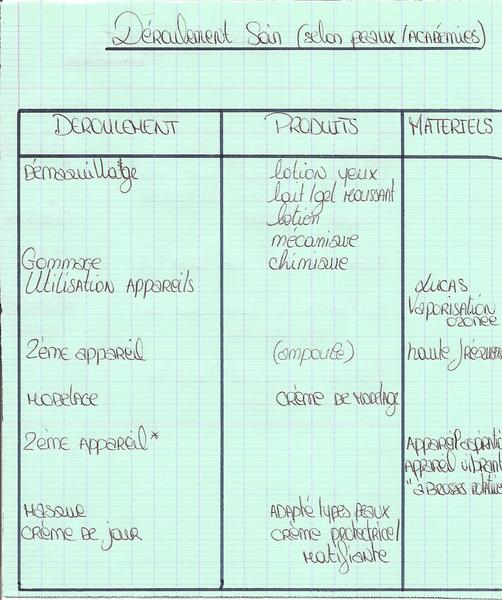 Déroulement Soin (selon peaux/ACADÉMIES)
DEROULEMENT PRODUITS MATERIELS
Démaquillage lotion yeux
lait/gel MOUSSANT
lotion
mécanique
Gommage chimique
Utilisation APPAREILS LUCAS
VAPORISATION
OZONÉE
2ème appareil (ampoule) haute
MODELAGE CRÈME DE MODELAGE
2ème APPAREIL*
APPAREIL
APPAREIL vibrant
" à BROSSES
MASQUE ADAPTÉ types PEAUX
CRÈME DE jour CRÈME protectrice/
MATIFIANTE